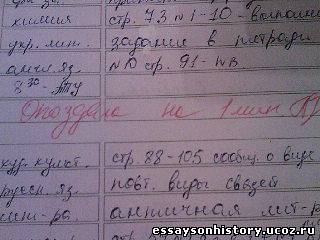 химия стр. 73 №1-10 - выполни
укр. лит. задание в тетради
англ. яз. №10 стр. 91 - №
Опоздала на 1 мин
худ. культ. стр. 88-105 сообщ. о виде
русск. яз. повт. виды связей
лит-ра. античная лит-р
www.essaysonhistory.ucoz.ru